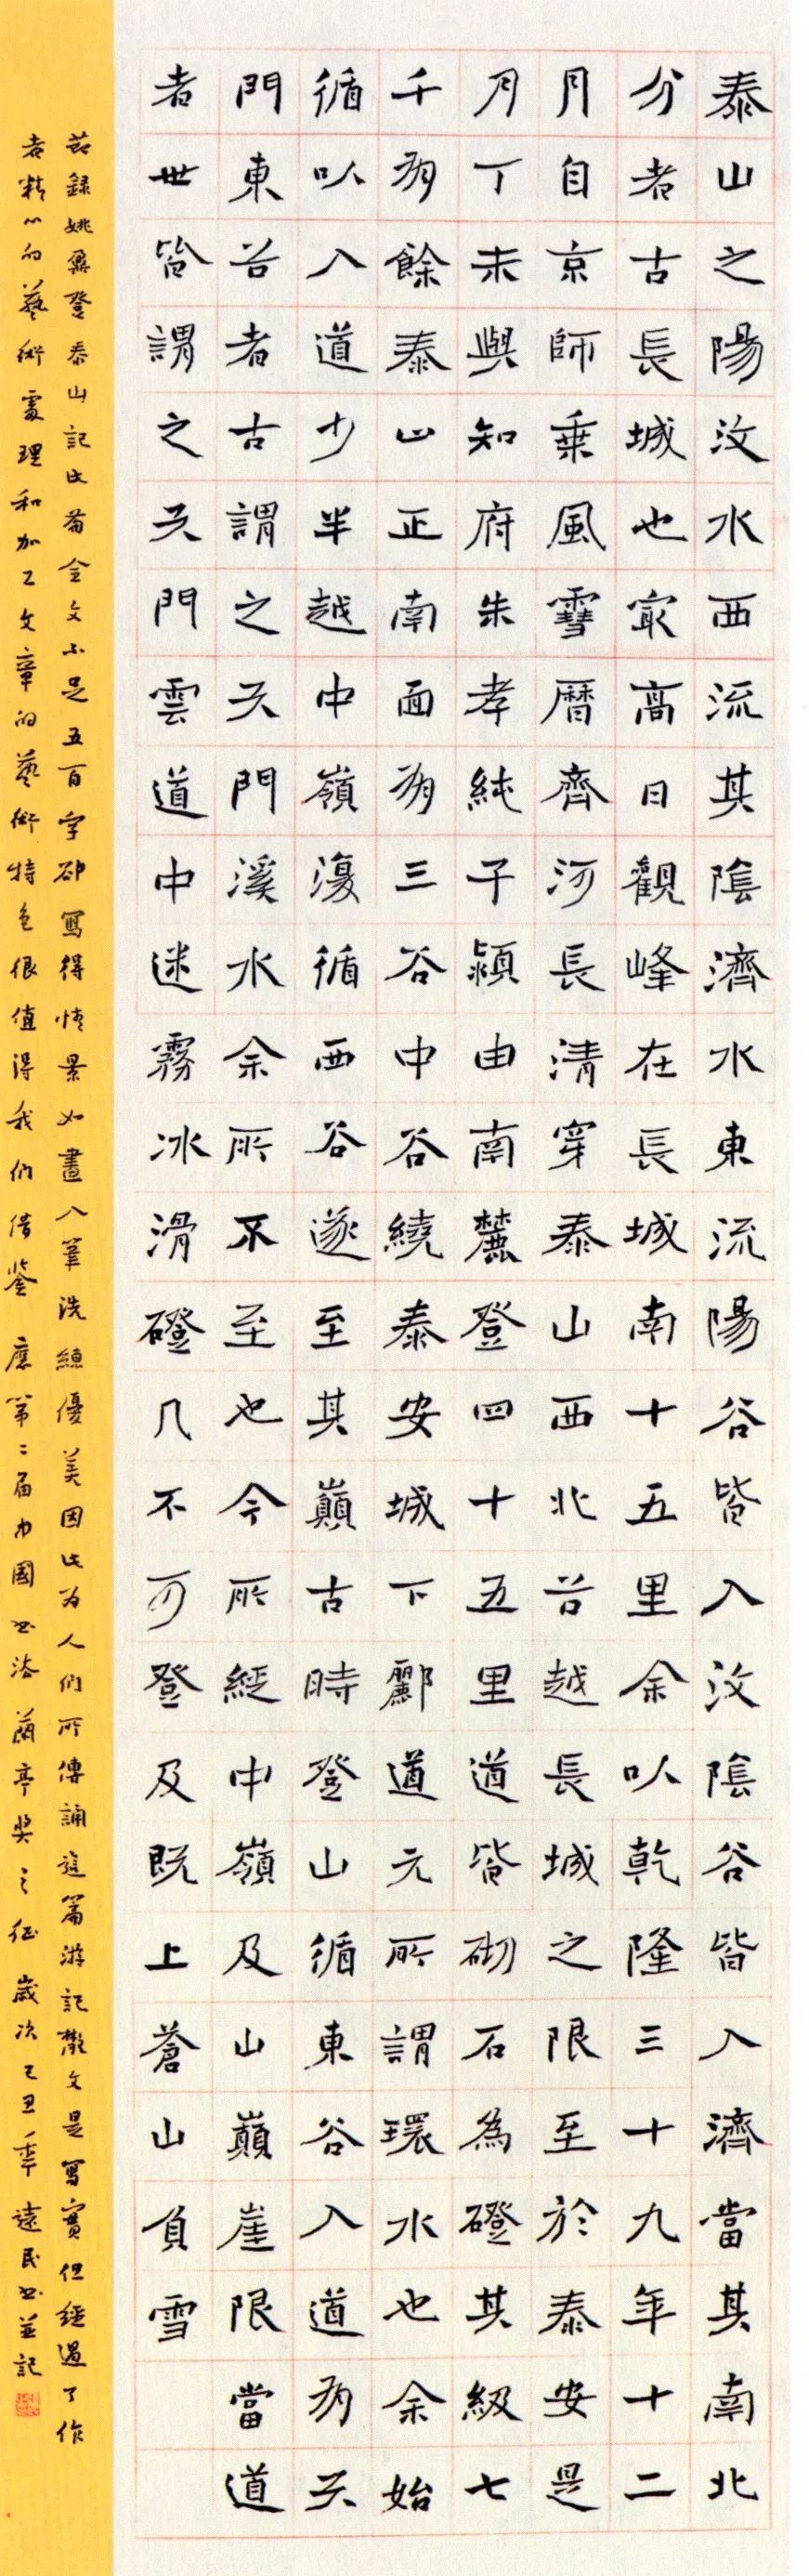 泰山之陽汶水西流其陰濟水東流陽谷皆入汶陰谷皆入濟當其南北
分者古長城也冣高日觀峰在長城南十五里余以乾隆三十九年十二
月自京師乗風雪曆齊河長清穿泰山西北谷越長城之限至於泰安是
月丁未與知府朱孝純子潁由南麓登四十五里道皆砌石為磴其級七
千有餘泰山正南面有三谷中谷繞泰安城下酈道元所謂環水也余始
循以入道少半越中嶺復循西谷遂至其巔古時登山循東谷入道有天
門東谷者古謂之天門溪水余所不至也今所經中嶺及山巔崖限當道
者世皆謂之天門雲道中迷霧冰滑磴几不可登及既上蒼山負雪
節録姚鼐登泰山記此篇全文不足五百字卻寫得情景如畫入筆洗練優美因此为人們所傳誦這篇游記散文是寫實但經過了作
者精心的藝術處理和加工文章的藝術特色很值得我們借鉴 應第二届中國书法蘭亭奖之征 歲次己丑年遠民书並記